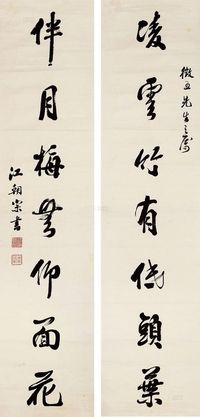 凌雲竹有低頭葉
徵五先生之屬
伴月梅無仰面花
江朝宗書